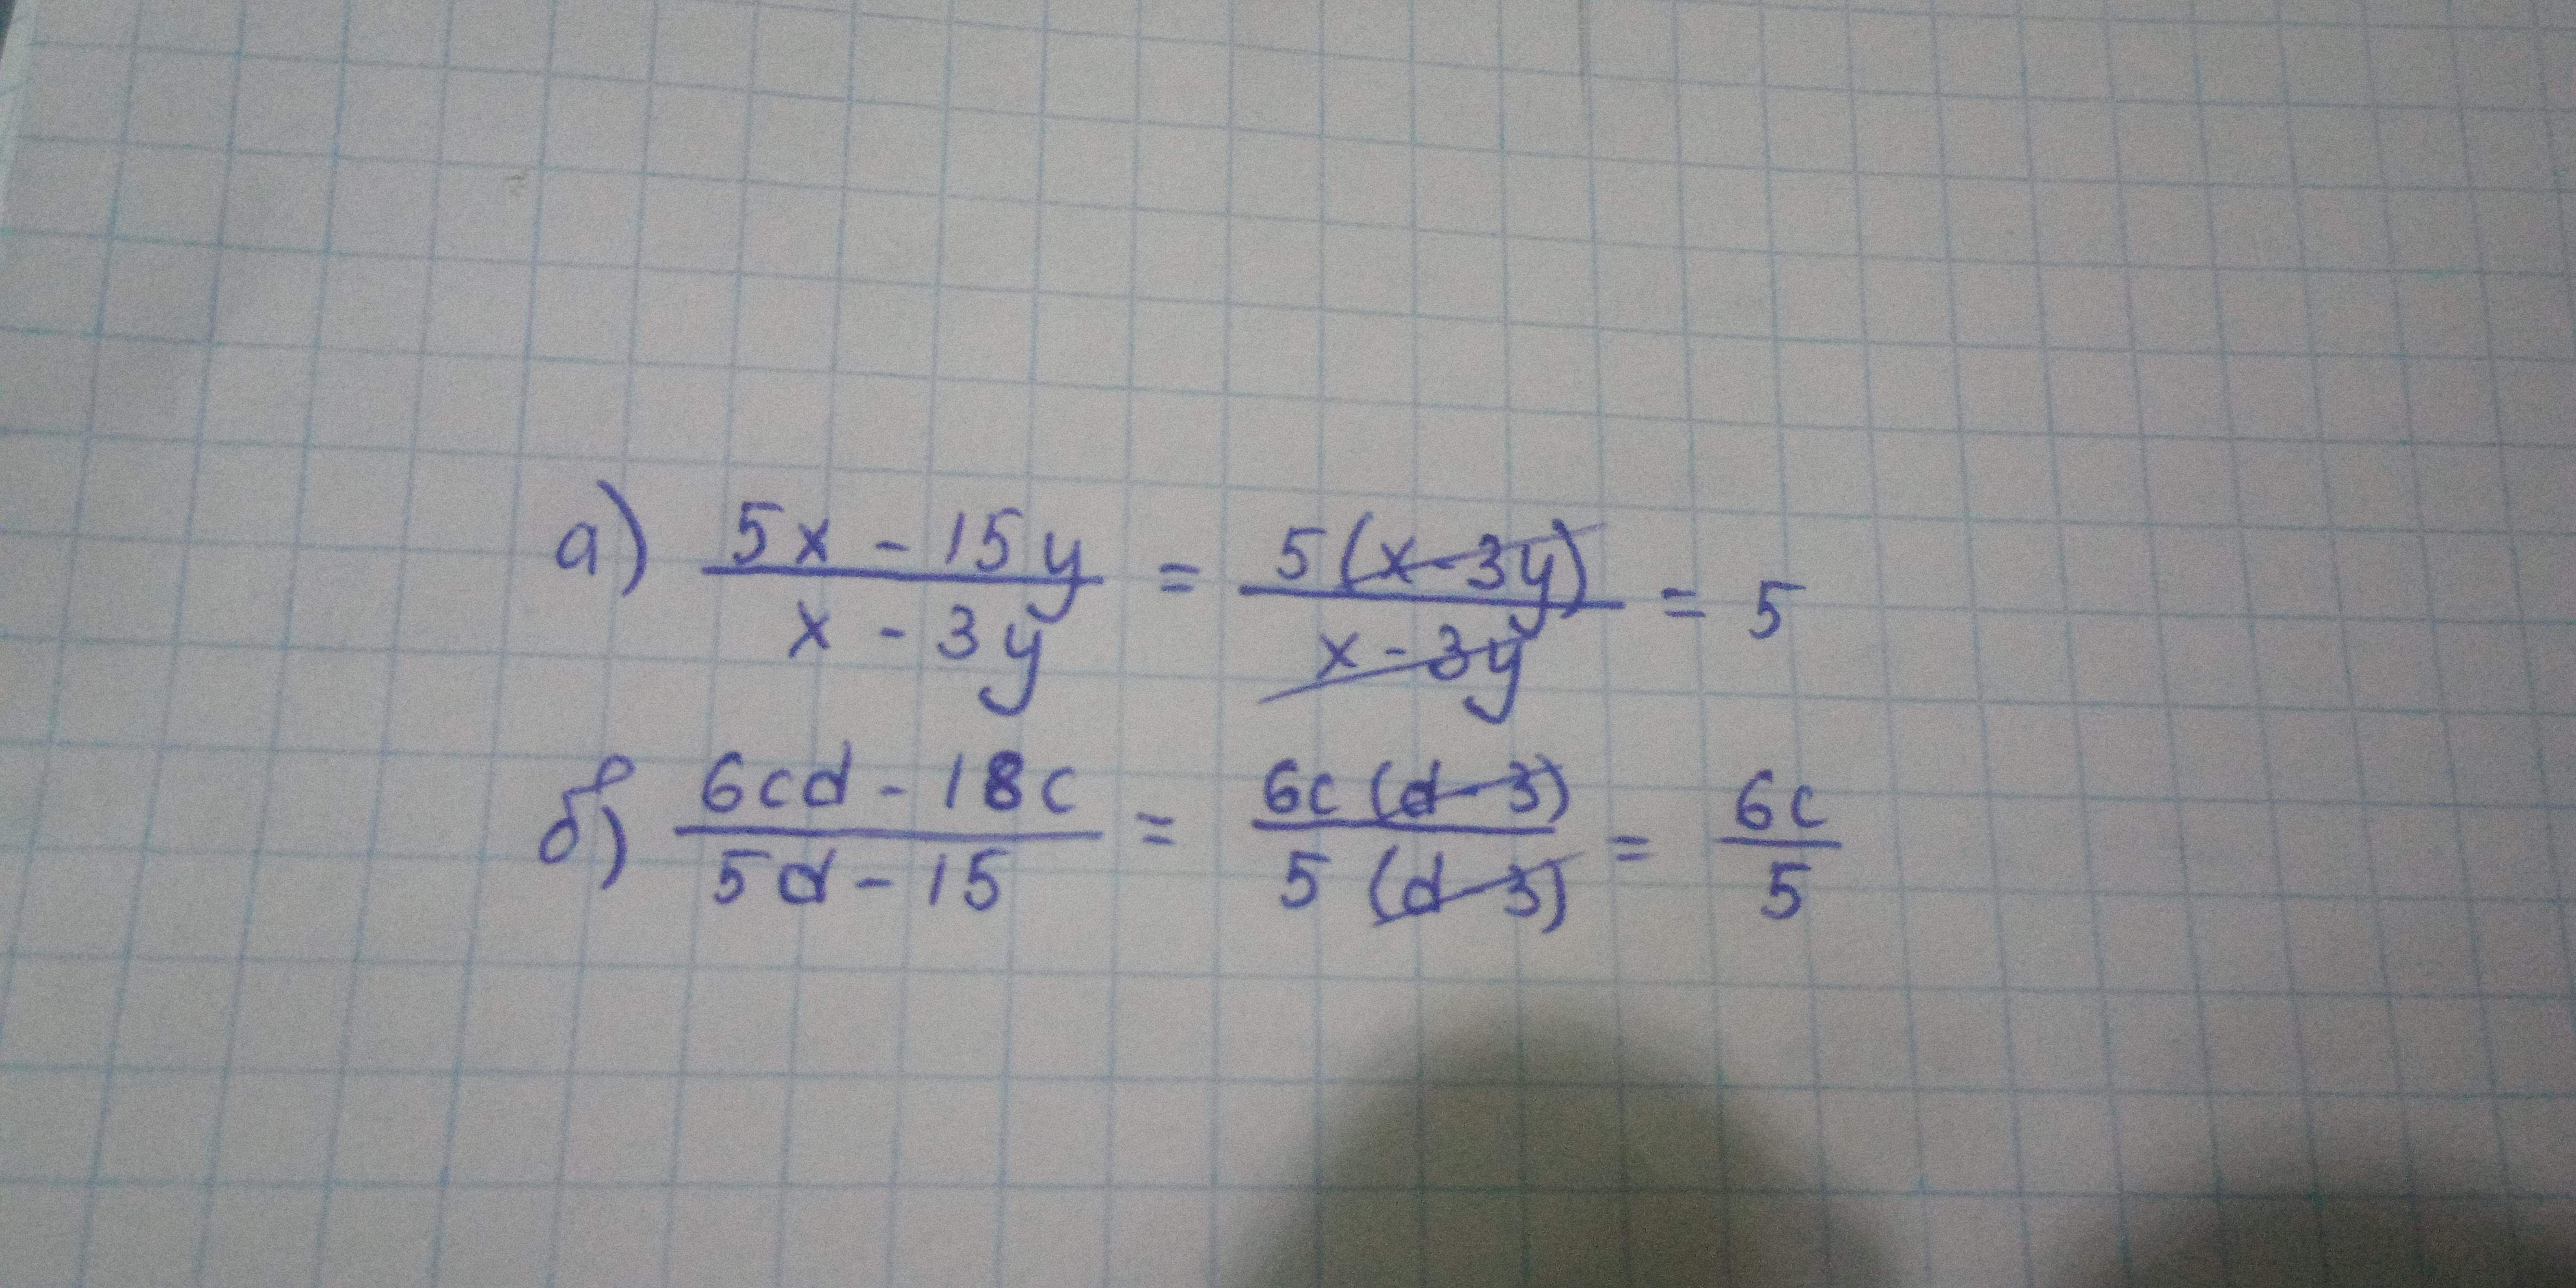 а) (5x - 15y)/(x - 3y) = 5(x-3y)/(x-3y) = 5
б) (6cd - 18c)/(5d - 15) = 6c(d-3)/5(d-3) = 6c/5